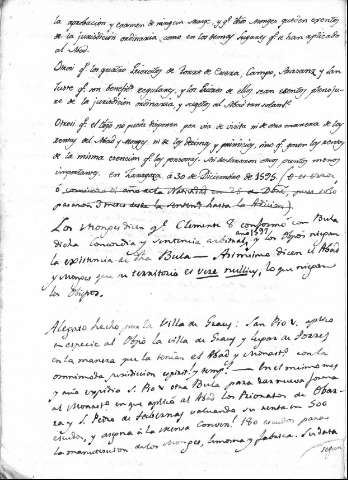 la aprobacion y examen de ningun Mayr. y qe. dhos Monges queden exentos
de la jurisdicion ordinaria, como en los demas lugares qe. se han aplicado
al Abad.
Otrosi qe. los quatro Prioratos de Torre de Esera, Campo,
Juste qe. son beneficios regulares, y los Priores de ellos sean exentos
de la jurisdicion ordinaria, y sugetos al Abad tan solamte.
Otrosi qe. el Obpo no pueda disponer por via de visita ni de otra manera de las
rentas del Abad y Monges ni de las decimas y primicias, sino qe. gocen los
de la misma exencion qe. las personas. Asi declararon otros puntos menos
importantes en Zaragoza á 30 de Diciembre de 1595. (
ó comienza el año a la Natividad en 25 de Dbre, pues solo
pasaron 3 meses
Los Monges dicen qe. Clemente 8 conformó con Bula
año 1597
dicha concordia y sentencia arbitral, y los Obpos niegan
la existencia de dha Bula — Asimismo dicen el Abad
y Monges que su territorio es vere nullius, lo que niegan
los Obispos.
Alegato hecho por la Villa de Graus: San Pio V. aplicó
en especie al Obpo la villa de Graus y lugar de Torres
en la manera que la tenian el Abad y Monastº. con la
omnimoda jurisdicion espirl. y templ. — En el mismo mes
y año expidio S. Pio V otra Bula para dar nueva forma
al Monastº. en que aplicó al Abad los Prioratos de Obar-
ra y S. Pedro de Tabernas valuando su renta en 500
escudos, y asigna á la Mensa Convenl. 180 escudos para
la manutencion de los Monges, limosna y fabrica. Su data